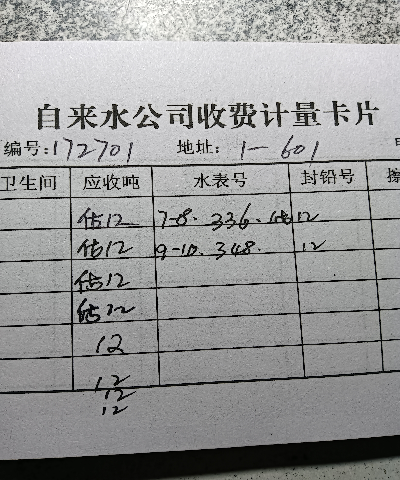 自来水公司收费计量卡片
编号:172701 地址: 1-601
卫生间 应收吨 水表号 封铅号
估12 7-8. 336. 估12
估12 9-10. 348. 12
估12
估12
12
12
12
12